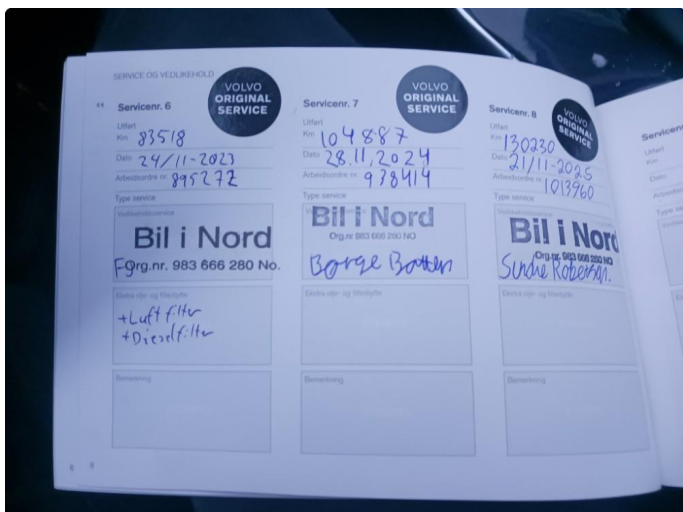 SERVICE OG VEDLIKEHOLD
Servicenr. 6
VOLVO
ORIGINAL
SERVICE
Utført
Km 83518
Dato 24/11-2023
Arbeidsordre nr. 895272
Type service
Vedlikeholdsservice
Bil i Nord
Org.nr. 983 666 280 No.
Ekstra olje- og filterbytte
+Luftfilter
+Dieselfilter
Bemerkning
Servicenr. 7
VOLVO
ORIGINAL
SERVICE
Utført
Km 104887
Dato 28.11,2024
Arbeidsordre nr. 978414
Type service
Bil i Nord
Org.nr 983 666 280 NO
Børge
Ekstra olje- og filterbytte
Bemerkning
Servicenr. 8
VOLVO
ORIGINAL
SERVICE
Utført
Km 130230
Dato 21/11-2025
Arbeidsordre nr. 1013960
Type service
Bil i Nord
Org.nr 983 666 280 NO
Sindre Robersen.
Ekstra olje- og filterbytte
Bemerkning
Servicenr
Utført
Km
Dato
Arbeidsordre
Type
8
8